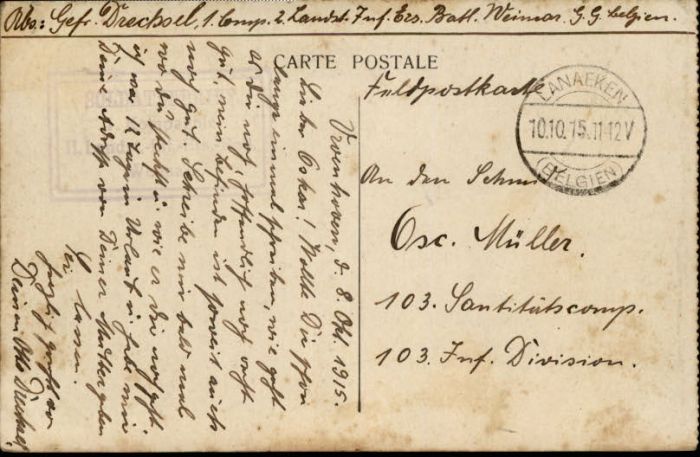 Abs: Gefr. Drechsel, 1. Comp. 2. Landst. Inf. Ers. Batl. Weimar. G. G. Belgien.
CARTE POSTALE
Feldpostkarte
LANAEKEN
10.10.15.11-12V
(BELGIEN)
An den
Osc. Müller.
103. Sanitätscomp.
103. Inf. Division.
d. 8. Okt. 1915.
Lieber Oskar! Wollte Dir schon
lange einmal schreiben, wie geht
es dir noch, hoffentlich noch recht
gut, mein befinden ist soweit auch
noch gut. Schreibe mir bald mal
wo du steckst u. wie es dir noch geht.
ich war 12 Tage in Urlaub u. habe mir
Deine Adresse von Deiner Mutter geben
lassen.
Es
grüßt
Dein Otto Drechsel